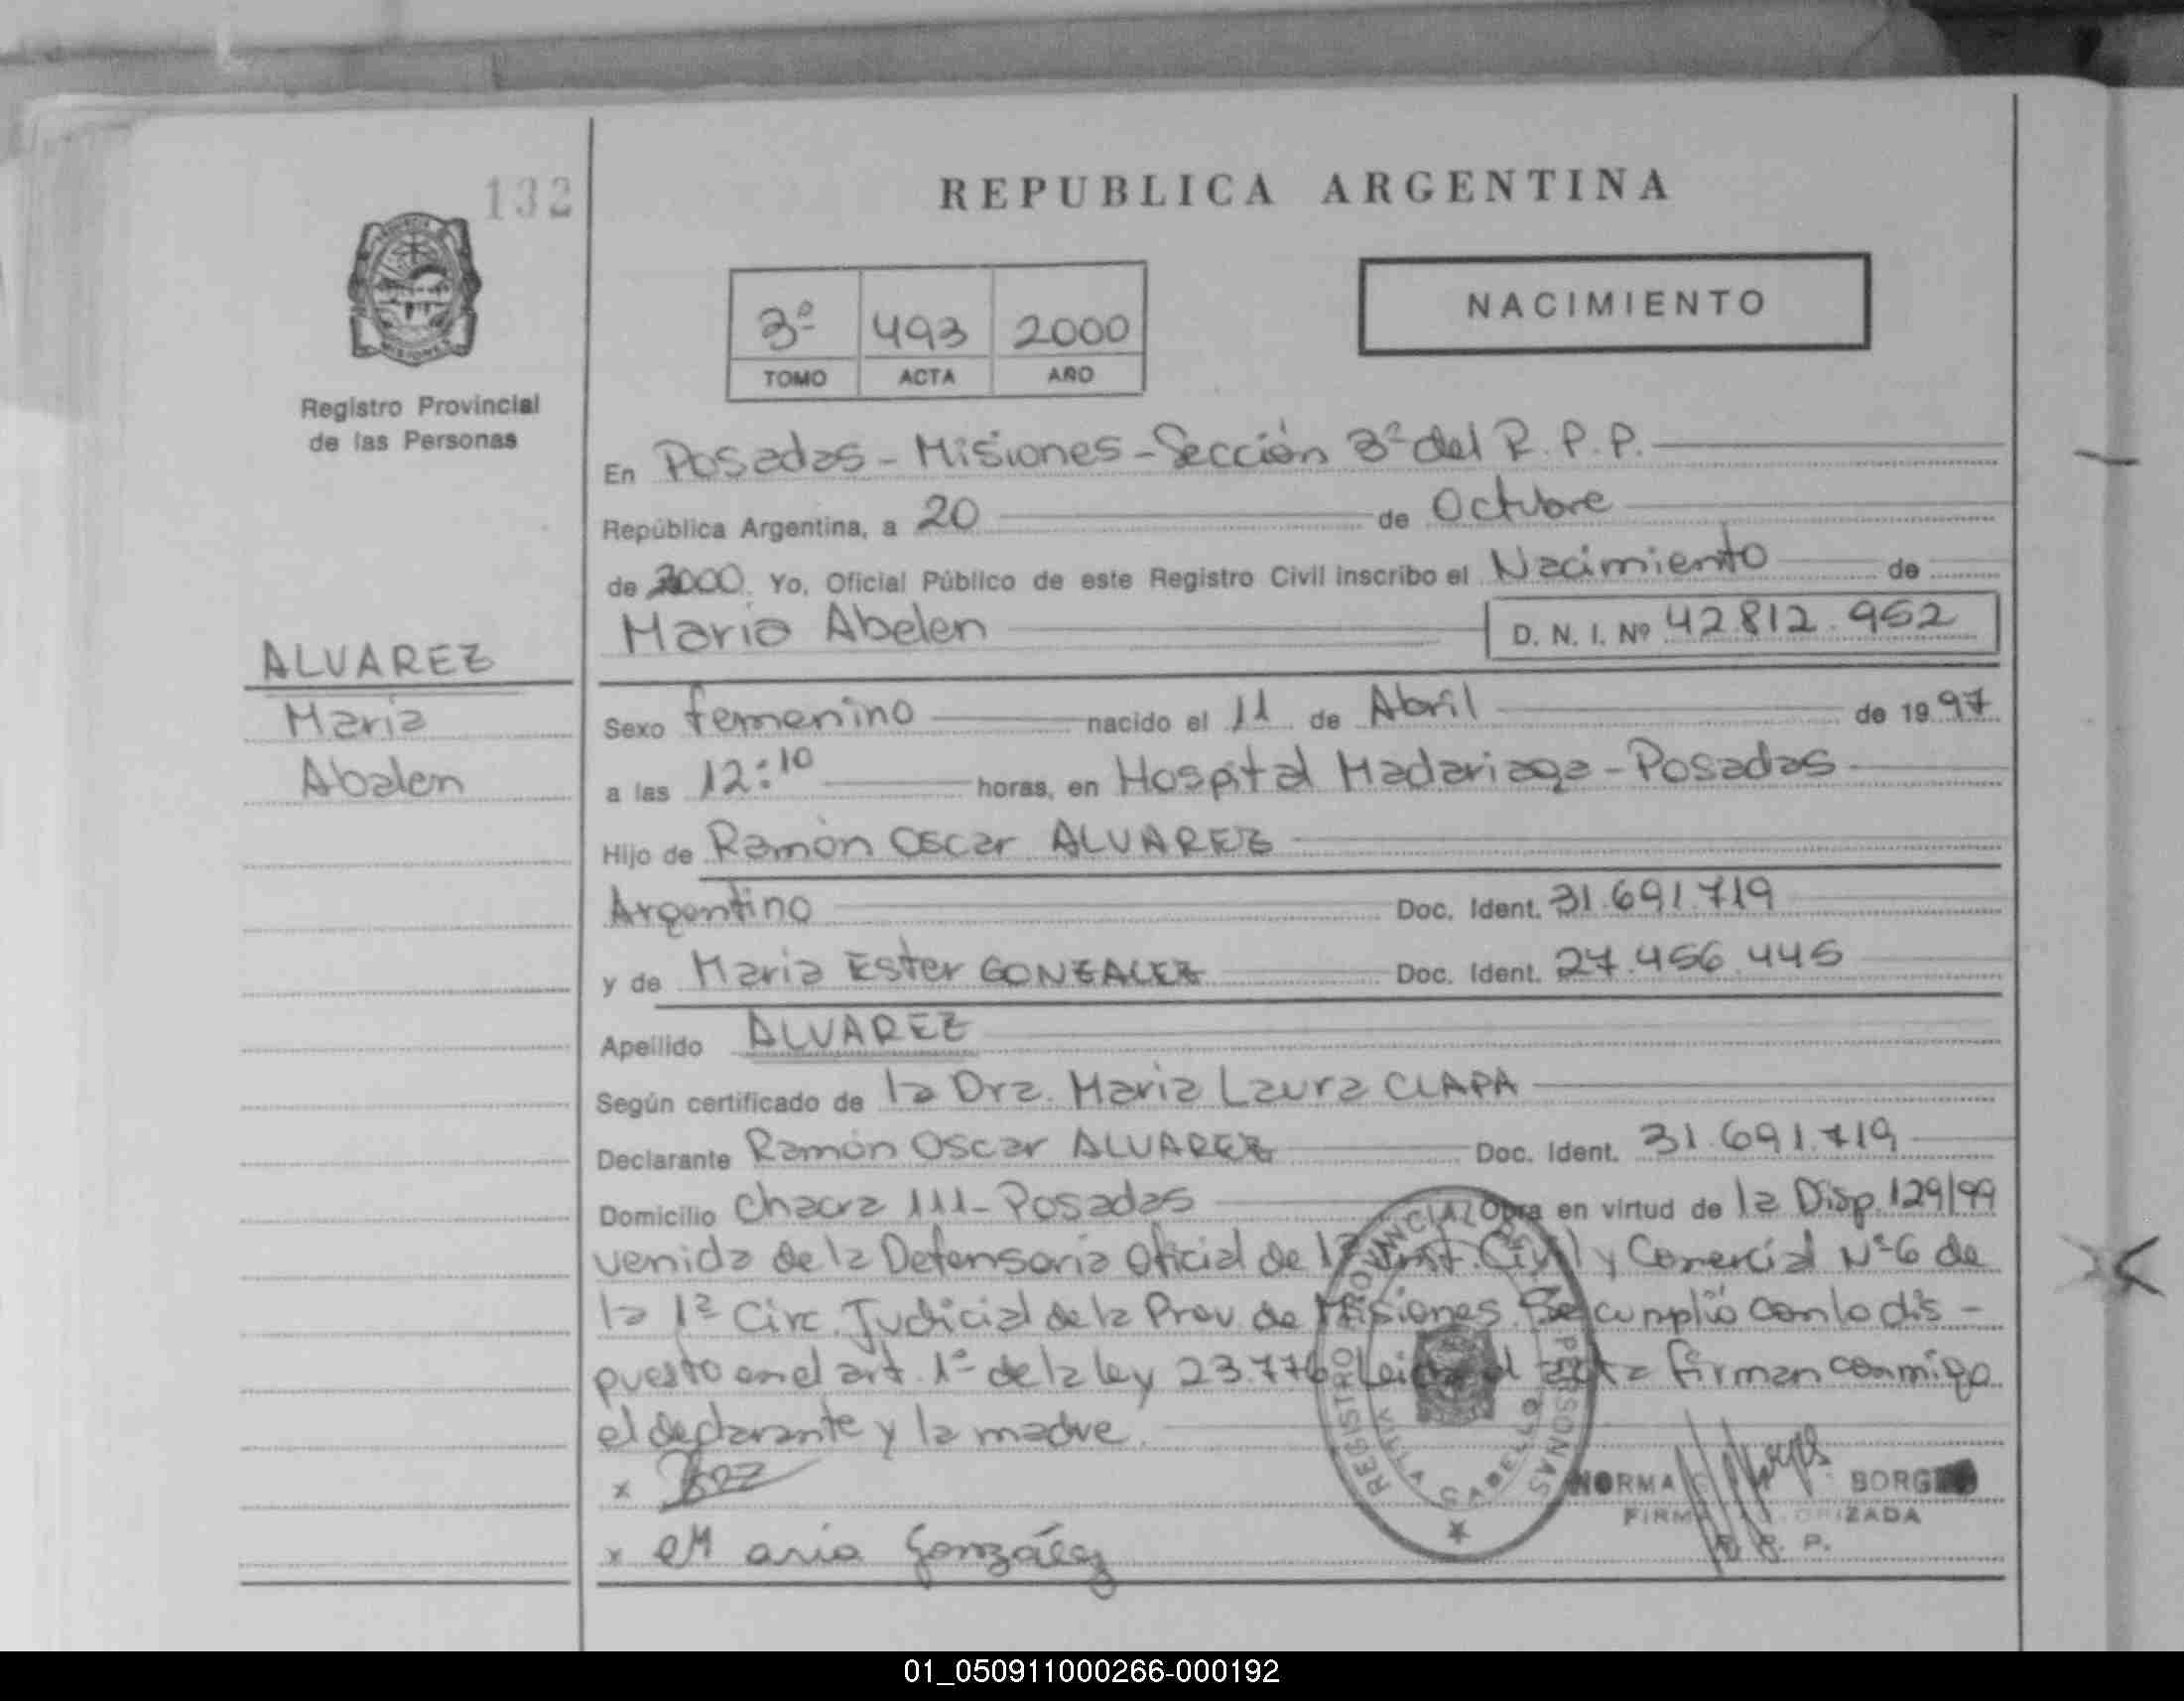 132
REPUBLICA ARGENTINA
NACIMIENTO
3º 493 2000
TOMO ACTA AÑO
MISIONES
Registro Provincial
de las Personas
En Posadas - Misiones - Sección 3ª del R. P. P.
República Argentina, a 20 de Octubre
de 2000. Yo, Oficial Público de este Registro Civil inscribo el Nacimiento de
Maria Abelen D. N. I. Nº 42812.952
ALVAREZ
Maria
Abalen
Sexo femenino nacido el 11 de Abril de 1997
a las 12:10 horas, en Hospital Madariaga - Posadas
Hijo de Ramón Oscar ALVAREZ
Argentino Doc. Ident. 31.691.719
y de Maria Ester GONZALEZ Doc. Ident. 27.456.445
Apellido ALVAREZ
Según certificado de la Dra. Maria Laura CLAPA
Declarante Ramón Oscar ALVAREZ Doc. Ident. 31.691.719
Domicilio Chacra 111 - Posadas Obra en virtud de la Disp. 129/99
venida de la Defensoria Oficial de 1ª Inst. Civil y Comercial Nº 6 de
la 1ª Circ. Judicial de la Prov de Misiones. Se cumplió con lo dis-
puesto en el art. 1º de la ley 23.776 Leida el acta firman conmigo
el declarante y la madre.
x
x Maria González
REGISTRO PROVINCIAL DE PERSONAS
VILLA CABELLO
NORMA BORGES
FIRMA AUTORIZADA
R. P. P.
01_050911000266-000192